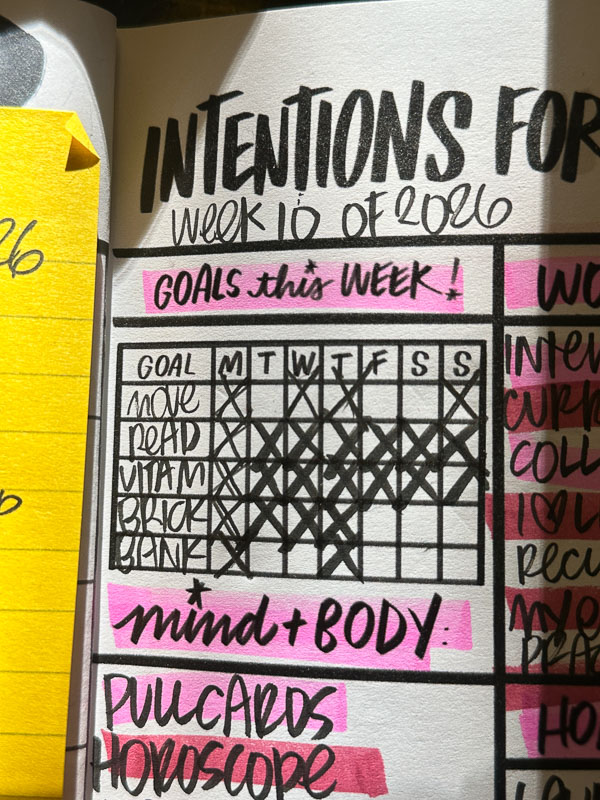 INTENTIONS FOR
Week 10 of 2026
GOALS this WEEK!
GOAL M T W T F S S
MOVE X X X X
READ X X X X X X X
VITAM X X X X X X X
BRICK X X X X
BANK X X
mind + BODY:
PULL CARDS
HOROSCOPE
26
WO
INTEN
CURR
COLL
I ♥ L
RECU
MY O
PRA
HO